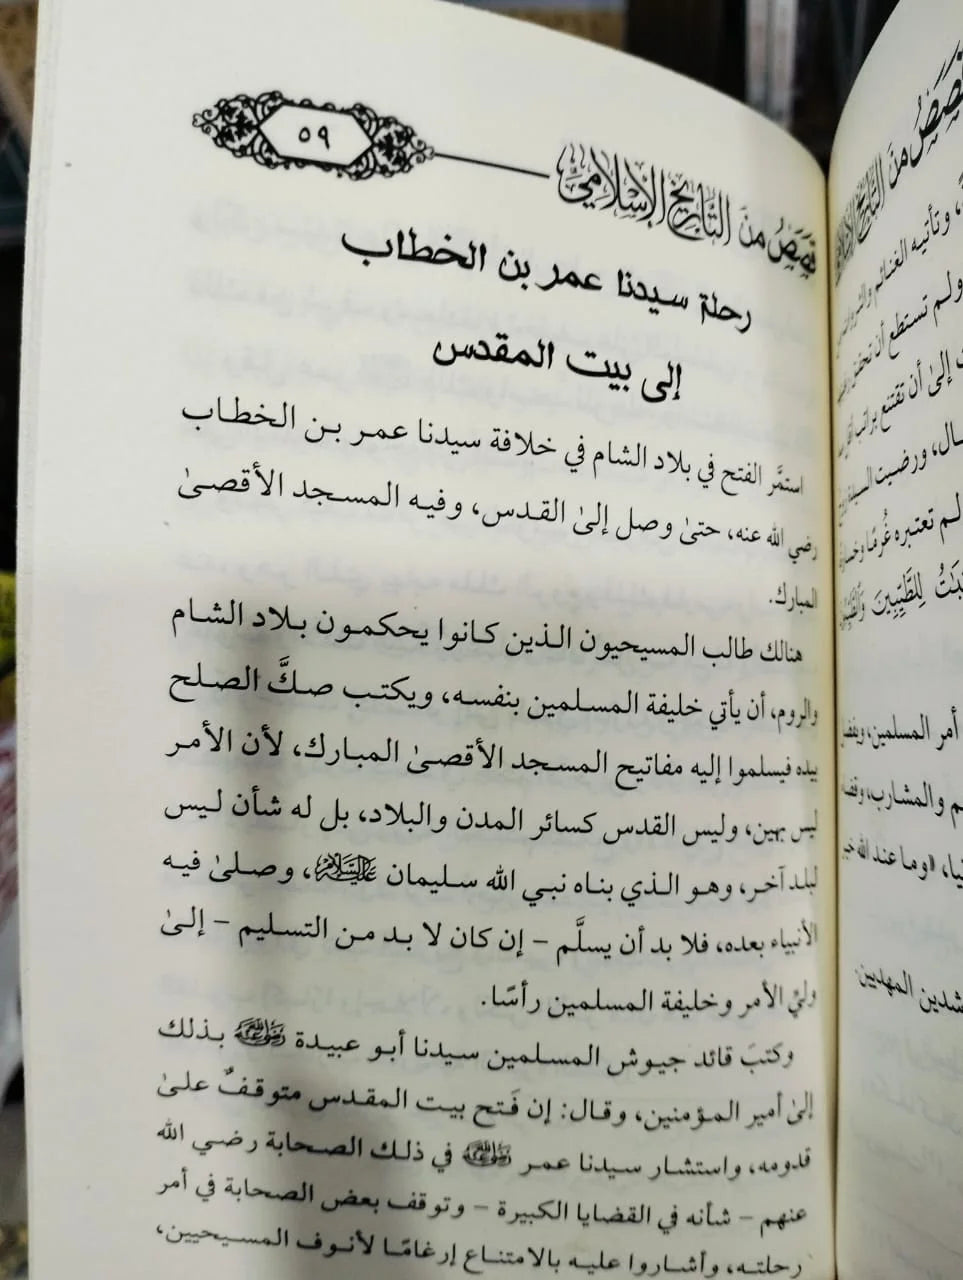 قصص من التاريخ الإسلامي
٥٩
رحلة سيدنا عمر بن الخطاب
إلى بيت المقدس
استمَّر الفتح في بلاد الشام في خلافة سيدنا عمر بن الخطاب
رضي الله عنه، حتىٰ وصل إلىٰ القدس، وفيه المسجد الأقصىٰ
المبارك.
هنالك طالب المسيحيون الذين كانوا يحكمون بلاد الشام
والروم، أن يأتي خليفة المسلمين بنفسه، ويكتب صكَّ الصلح
بيده فيسلموا إليه مفاتيح المسجد الأقصىٰ المبارك، لأن الأمر
ليس بهين، وليس القدس كسائر المدن والبلاد، بل له شأن ليس
لبلد آخر، وهو الذي بناه نبي الله سليمان عليه السلام، وصلىٰ فيه
الأنبياء بعده، فلا بد أن يسلَّم – إن كان لا بد من التسليم – إلىٰ
وليّ الأمر وخليفة المسلمين رأسًا.
وكتبَ قائد جيوش المسلمين سيدنا أبو عبيدة رضي الله عنه بذلك
إلىٰ أمير المؤمنين، وقال: إن فَتح بيت المقدس متوقفٌ علىٰ
قدومه، واستشار سيدنا عمر رضي الله عنه في ذلك الصحابة رضي الله
عنهم – شأنه في القضايا الكبيرة – وتوقف بعض الصحابة في أمر
رحلته، وأشاروا عليه بالامتناع إرغامًا لأنوف المسيحيين،
قصص من التاريخ
وتأتيه الغنائم
ولم تستطع أن تحقق
إلىٰ أن تقتنع براتب
ورضيت السيدة
لم تعتبره غُرمًا
لِلطَّيِّبِينَ
أمر المسلمين،
والمشارب،
«وما عند الله خير
المهديين